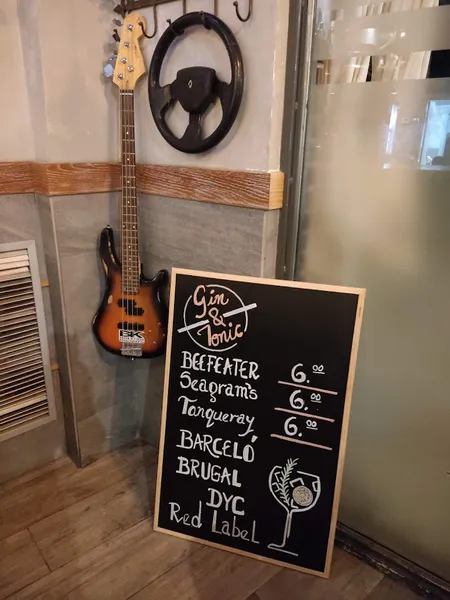 Gin
&
Tonic
BEEFEATER 6.00
Seagram's 6.00
Tanqueray 6.00
BARCELÓ
BRUGAL
DYC
Red Label